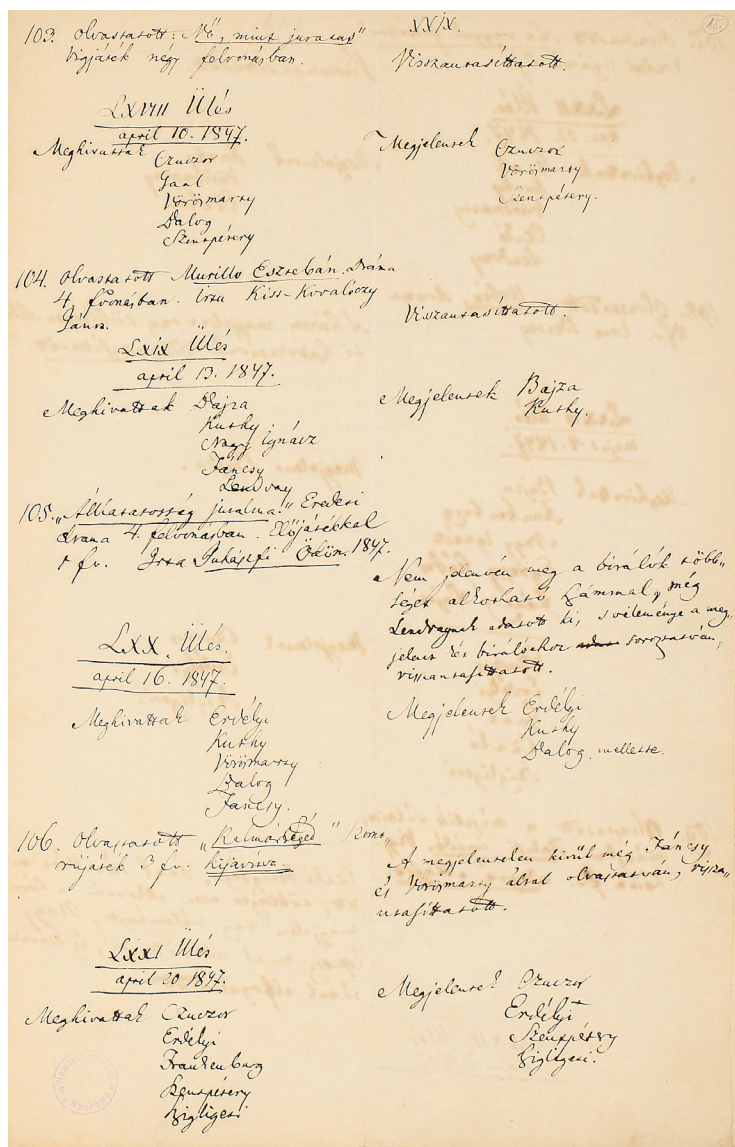 XXIX.
15
103. Olvastatott: "Nő, mint juratus"
Vigjáték négy felvonásban.
Visszautasíttatott.
LXVIII Ülés
april 10. 1847.
Meghivattak Czuczor
Gaal
Vörösmarty
Balog
Szentpétery
Megjelentek Czuczor
Vörösmarty
Szentpétery.
104. Olvastatott Murillo Esztebán. Dráma
4. fvonásban. Irta Kiss-Kovalóczy
János.
Visszautasíttatott.
LXIX Ülés
april 13. 1847.
Meghivattak Bajza
Kuthy
Nagy Ignácz
Fáncsy
Lendvay
Megjelentek Bajza
Kuthy.
105. "Állhatatosság jutalma." Eredeti
dráma 4. felvonásban. Előjátékkal
1 fv. Irta Ödön. 1847.
Nem jelenvén meg a birálók több„
ségét alkotható számmal, még
Lendvaynak adatott ki, s véleménye a meg„
jelent két birálóéhoz soroztatván,
visszautasíttatott.
LXX. Ülés.
april 16. 1847.
Meghivattak Erdélyi
Kuthy
Vörösmarty
Balog
Fáncsy.
Megjelentek Erdélyi
Kuthy
Balog mellette.
106. Olvastatott "Kalmársegéd" Szomo„
rújáték 3 fv. kijavitva.
A megjelenteken kivül még Fáncsy
és Vörösmarty által olvastatván, vissza„
utasíttatott.
LXXI Ülés
april 20 1847.
Meghivattak Czuczor
Erdélyi
Frankenburg
Szentpétery
Szigligeti
Megjelentek Czuczor
Erdélyi
Szentpétery
Szigligeti.